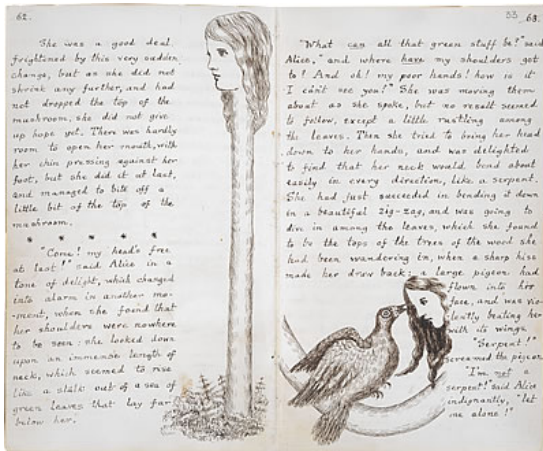 62.
She was a good deal
frightened by this very sudden
change, but as she did not
shrink any further, and had
not dropped the top of the
mushroom, she did not give
up hope yet. There was hardly
room to open her mouth, with
her chin pressing against her
foot, but she did it at last,
and managed to bite off a
little bit of the top of the
mushroom.
* * * * *
"Come! my head's free
at last!" said Alice in a
tone of delight, which changed
into alarm in another mo-
-ment, when she found that
her shoulders were nowhere
to be seen: she looked down
upon an immense length of
neck, which seemed to rise
like a stalk out of a sea of
green leaves that lay far
below her.
33 63.
"What can all that green stuff be?" said
Alice, "and where have my shoulders got
to? And oh! my poor hands! how is it
I can't see you?" She was moving them
about as she spoke, but no result seemed
to follow, except a little rustling among
the leaves. Then she tried to bring her head
down to her hands, and was delighted
to find that her neck would bend about
easily in every direction, like a serpent.
She had just succeeded in bending it down
in a beautiful zig-zag, and was going to
dive in among the leaves, which she found
to be the tops of the trees of the wood she
had been wandering in, when a sharp hiss
made her draw back: a large pigeon had
flown into her
face, and was vio-
lently beating her
with its wings.
"Serpent!"
screamed the pigeon.
"I'm not a
serpent!" said Alice
indignantly, "let
me alone!"